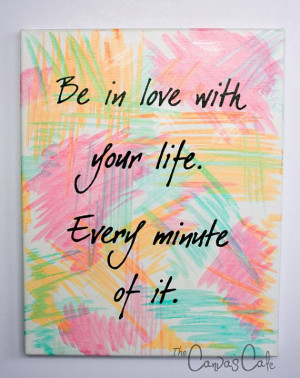 Be in love with
your life.
Every minute
of it.
The
Canvas Cafe